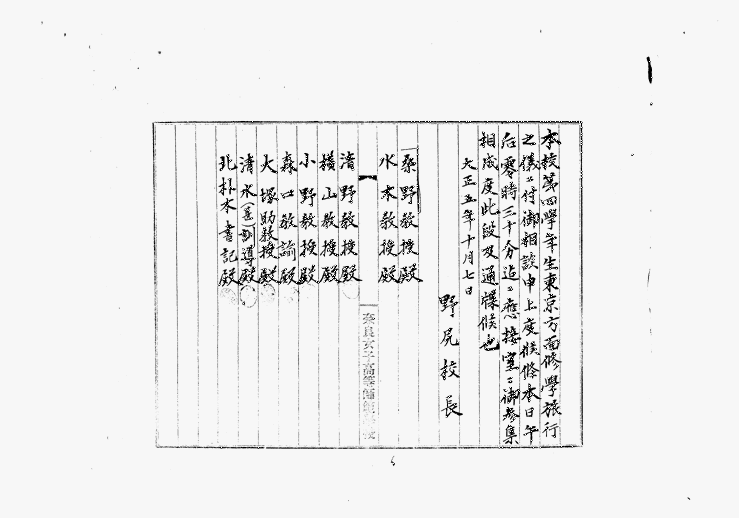 本校第四學年生東京方面修學旅行
之儀ニ付御相談申上度候條本日午
后零時三十分迄ニ應接室ニ御參集
相成度此段及通牒候也
大正五年十月七日
野尻校長
桑野教授殿
水木教授殿
清野教授殿
橫山教授殿
小野教授殿
森口教諭殿
大塚助教授殿
清水(甚)訓導殿
北村本書記殿
奈良女子高等師範學校